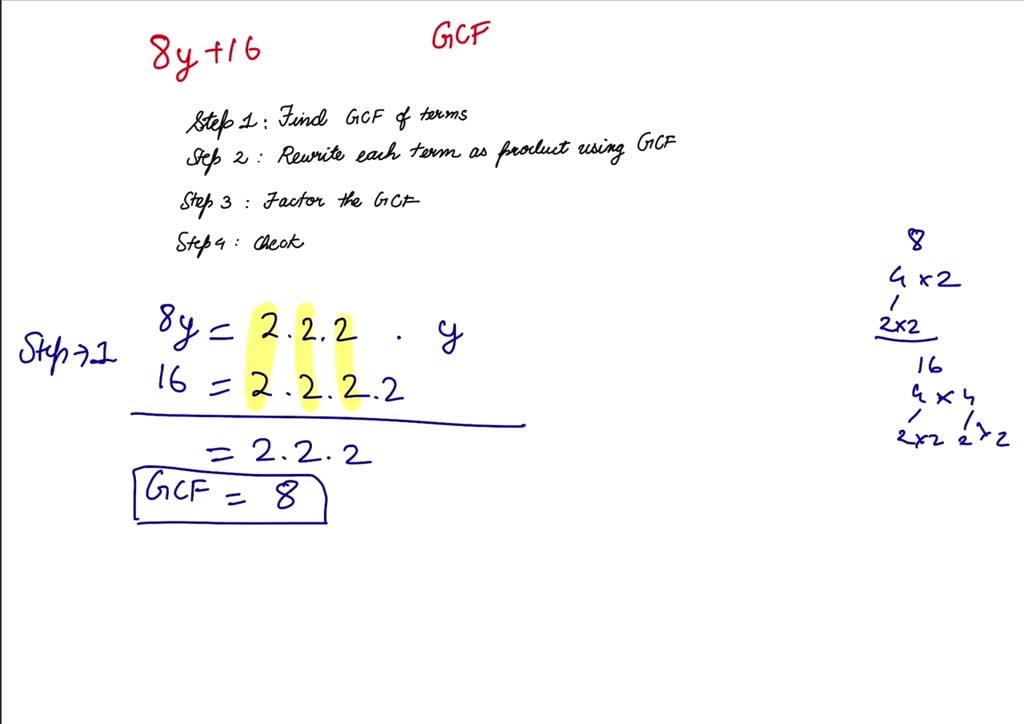 8y+16
GCF
Step 1: Find GCF of terms
Step 2: Rewrite each term as product using GCF
Step 3: Factor the GCF
Step 4: Check
Step→1
8y = 2.2.2 . y
16 = 2.2.2.2
= 2.2.2
GCF = 8
8
4 x 2
2x2
16
4 x 4
2x2 2x2